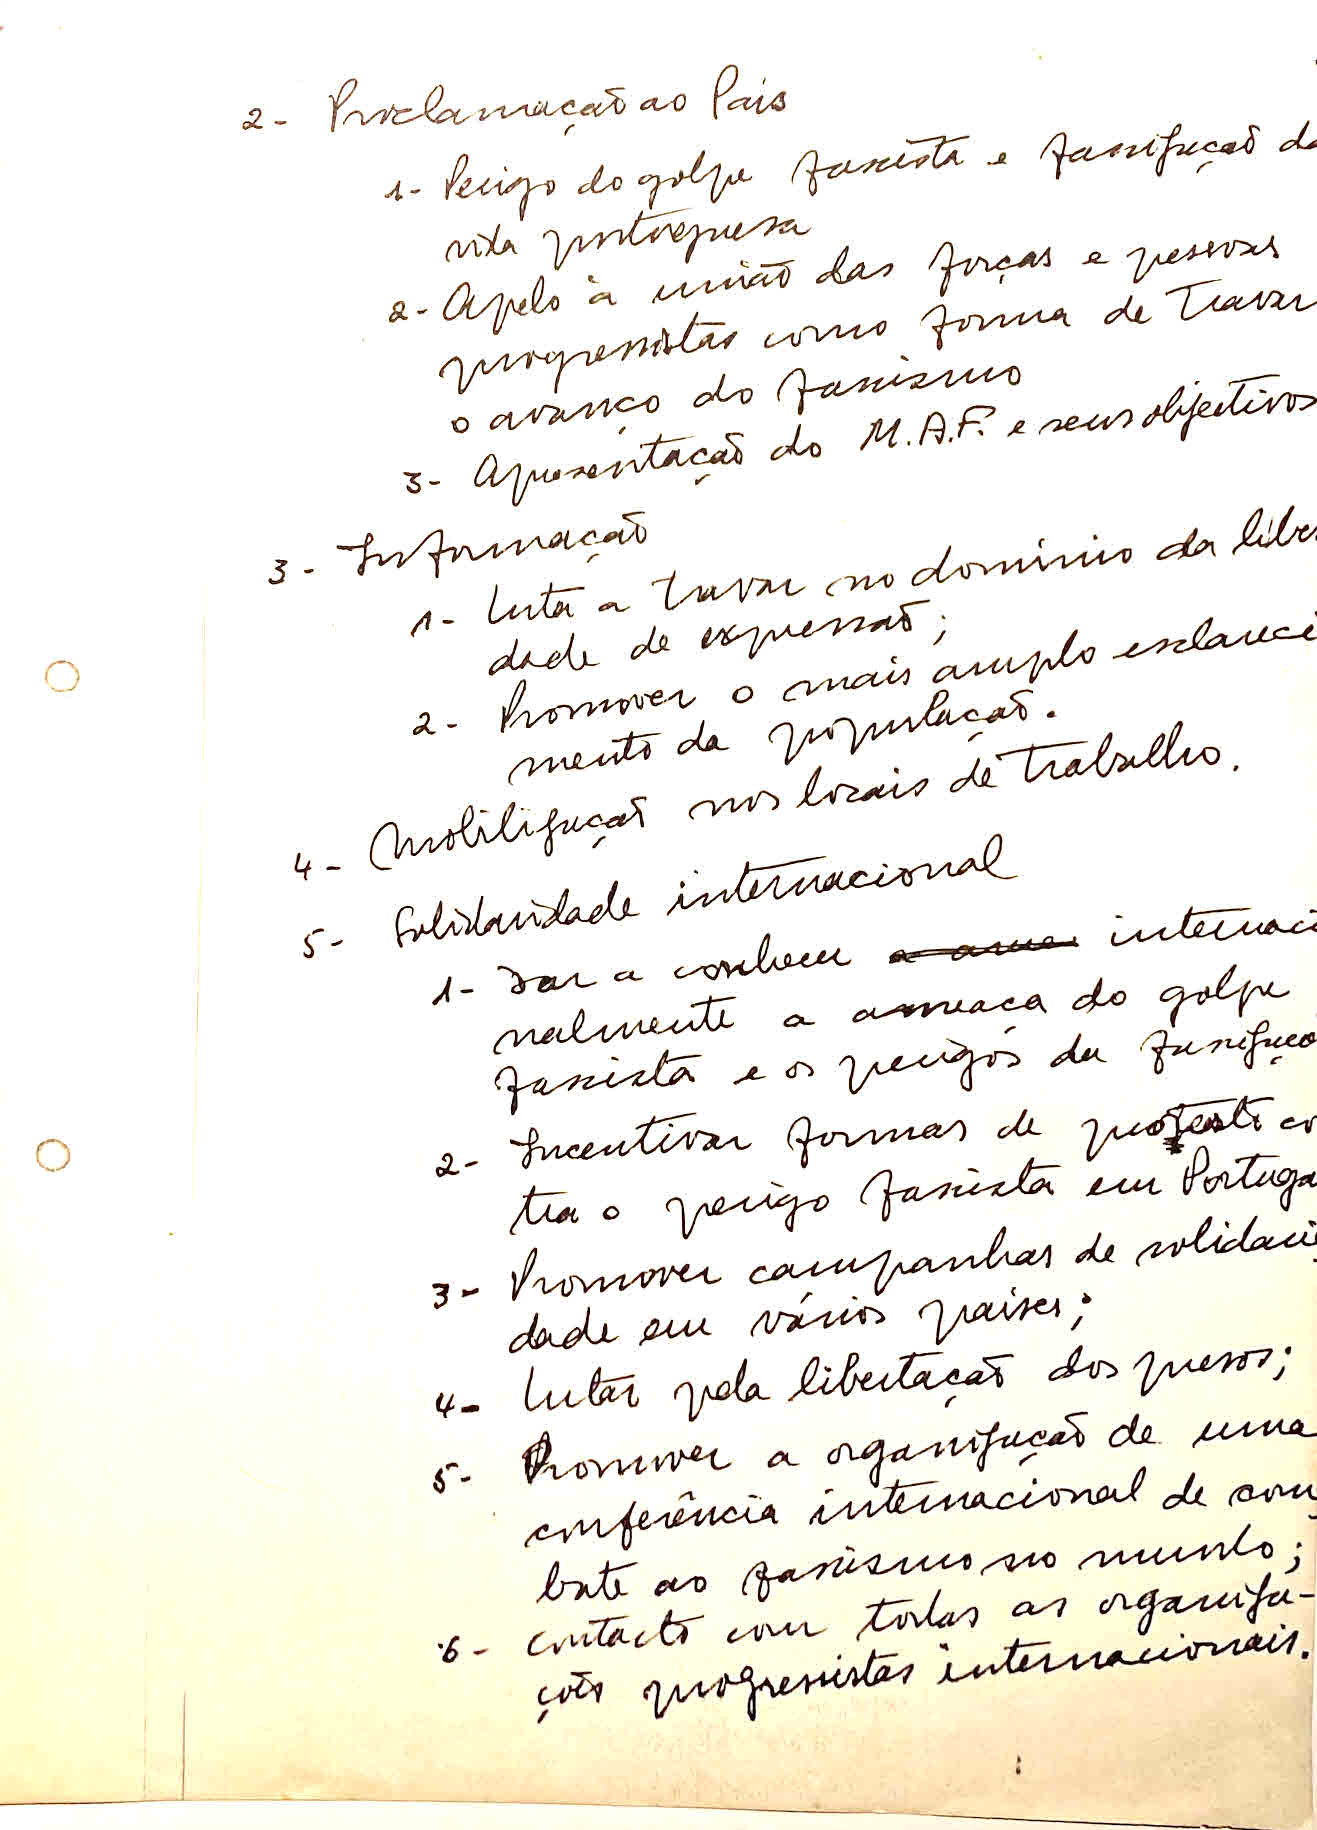 2- Proclamação ao País
1- Perigo do golpe fascista e fascização da
vida portuguesa
2- Apelo à união das forças e pessoas
progressistas como forma de travar
o avanço do fascismo
3- Apresentação do M.A.F. e seus objectivos
3- Informação
1- Luta a travar no domínio da liber
dade de expressão;
2- Promover o mais amplo esclareci
mento da população.
4- Mobilização nos locais de trabalho.
5- Solidariedade internacional
1- Dar a conhecer internaci
nalmente a ameaça do golpe
fascista e os perigos da fascizaçã
2- Incentivar formas de protesto co
tra o perigo fascista em Portuga
3- Promover campanhas de solidarie
dade em vários países;
4- Lutar pela libertação dos presos;
5- Promover a organização de uma
conferência internacional de com
bate ao fascismo no mundo;
6- Contacto com todas as organiza-
ções progressistas internacionais.